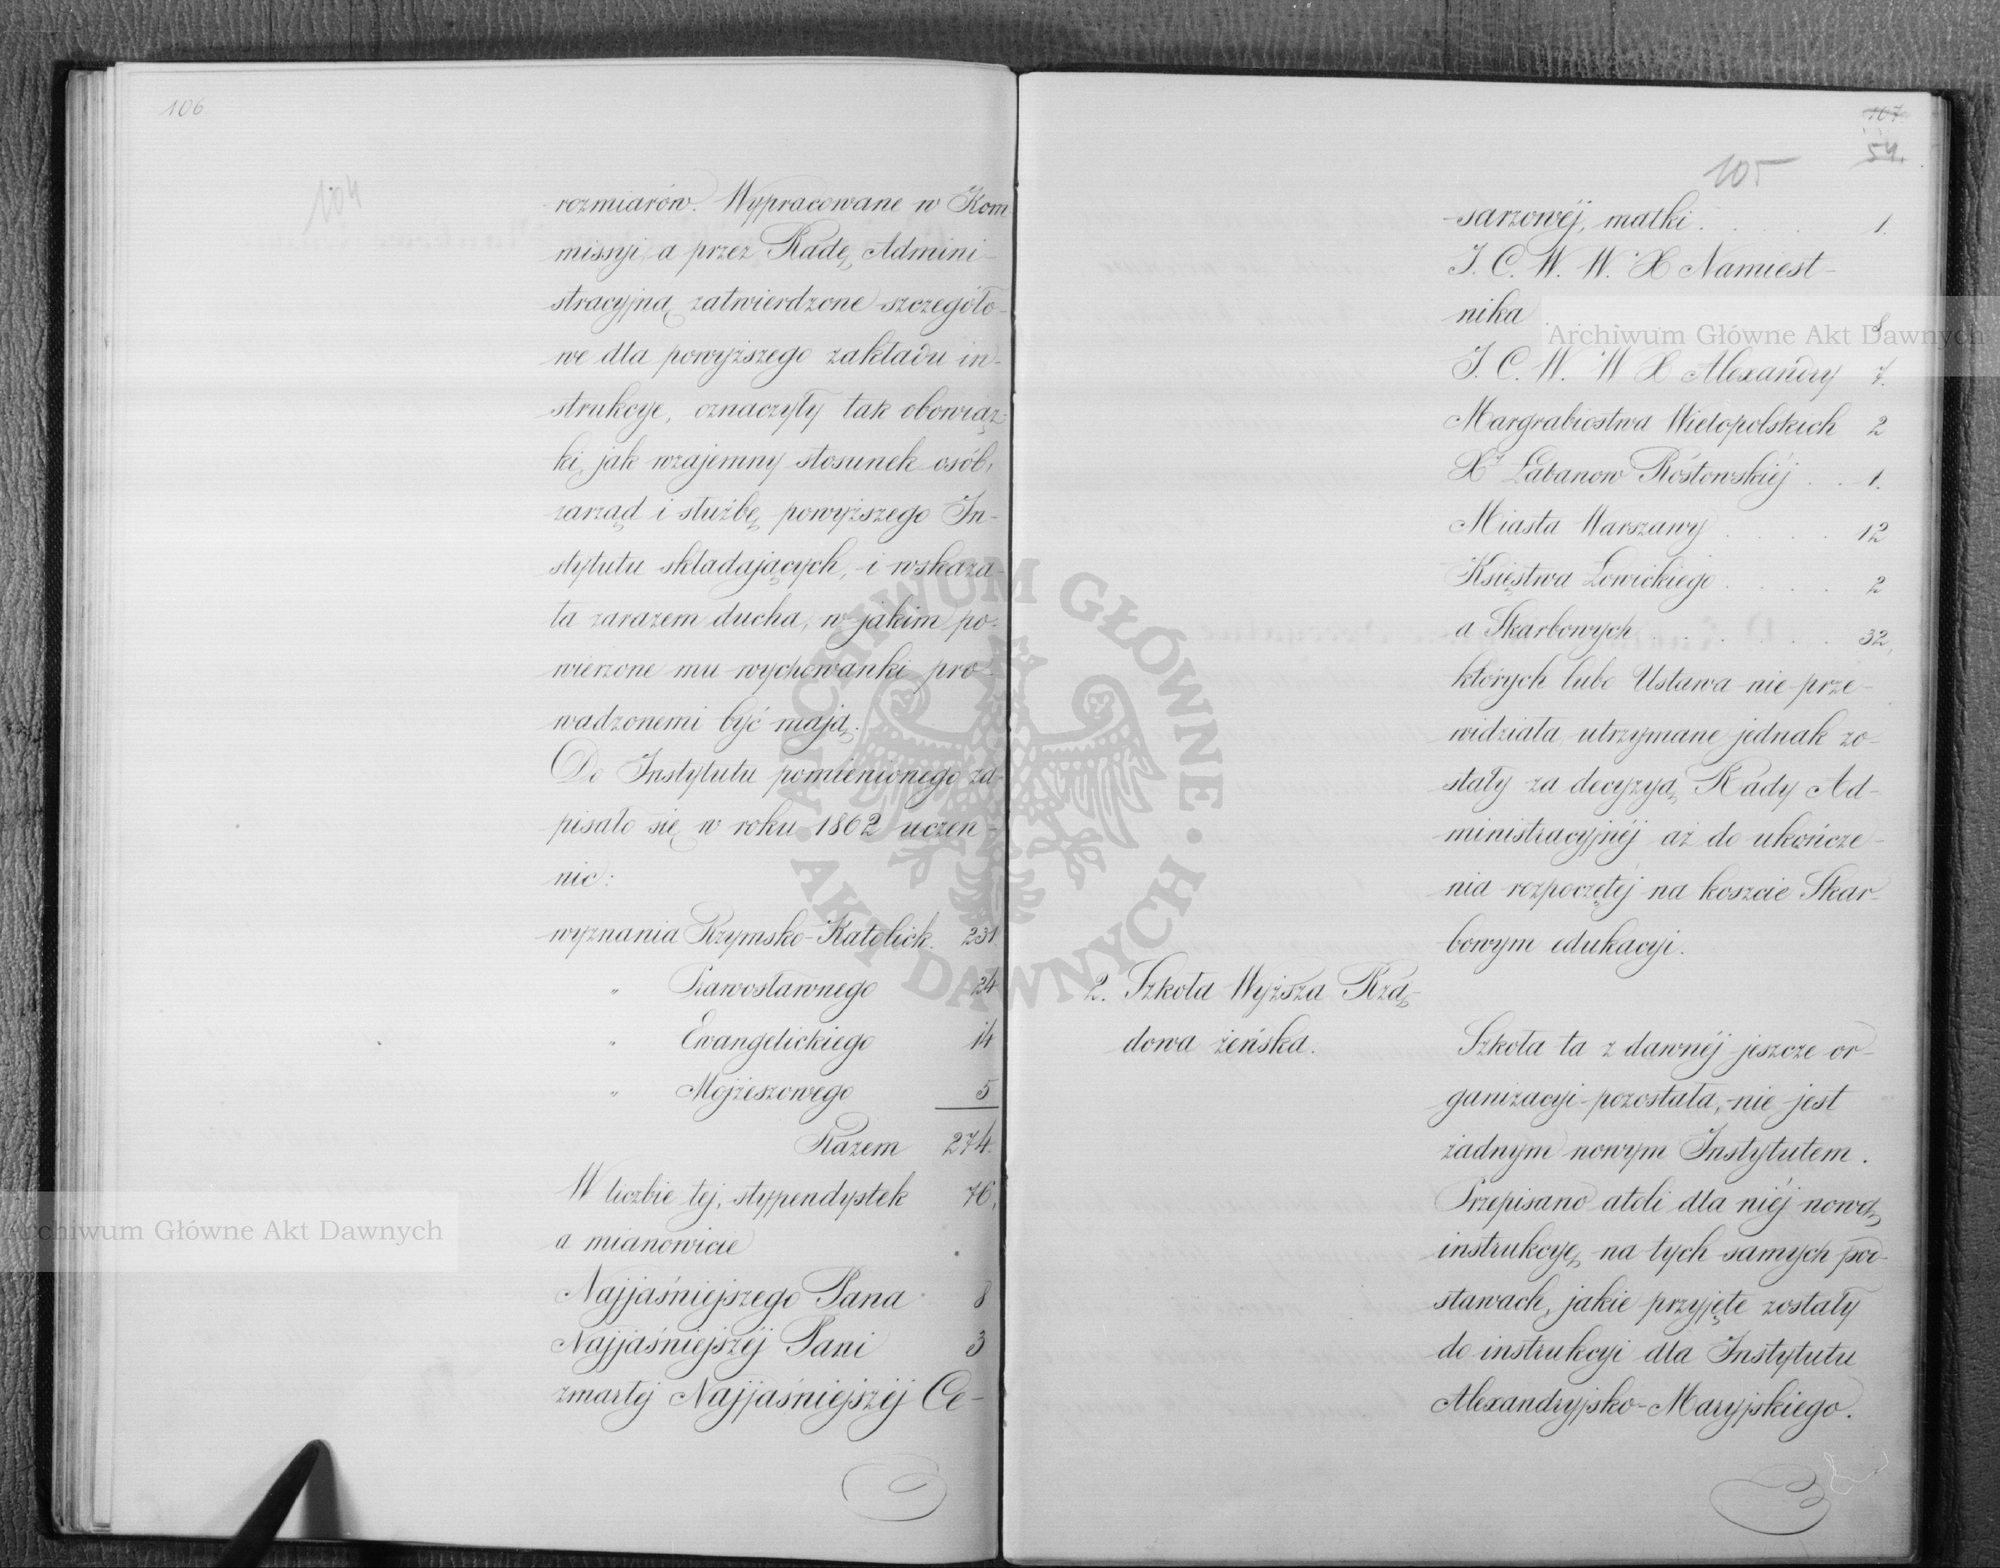 106
104
rozmiarów. Wypracowane w Kom
missyi, a przez Radę Admini-
stracyjną zatwierdzone szczegóło-
we dla powyższego zakładu in-
strukcye, oznaczyły tak obowiąz-
ki, jak wzajemny stosunek osób,
zarząd i służbę powyższego In-
stytutu składających, i wskaza-
ła zarazem ducha, w jakim po-
wierzone mu wychowanki pro-
wadzonemi być mają.
Do Instytutu pomienionego za-
pisało się w roku 1862 uczen-
nic:
wyznania Rzymsko-Katolick. 231
" Prawosławnego 24
" Ewangelickiego 14
" Mojżeszowego 5
Razem 274.
W liczbie tej, stypendystek 76,
a mianowicie
Najjaśniejszego Pana 8
Najjaśniejszéj Pani 3
zmarłej Najjaśniejszéj Ce-
107
54.
105
sarzowéj, matki . . . . 1.
J. C. W. W. X Namiest-
nika
J. C. W. W X Alexandry 7.
Margrabiostwa Wielopolskich 2
Xy Łabanow Róstowskiéj . . 1.
Miasta Warszawy . . . . 12
Księstwa Łowickiego . . . . 2
a Skarbowych . . . . . . 32,
których lubo Ustawa nie prze-
widziała, utrzymane jednak zo-
stały za decyzyą Rady Ad-
ministracyjnéj aż do ukończe-
nia rozpoczętéj na koszcie Skar-
bowym edukacyi.
2. Szkoła Wyższa Rzą-
dowa żeńska.
Szkoła ta z dawnéj jeszcze or-
ganizacyi pozostała, nie jest
żadnym nowym Instytutem.
Przepisano atoli dla niéj nową
instrukcyę, na tych samych pod-
stawach, jakie przyjęte zostały
do instrukcyi dla Instytutu
Alexandryjsko-Maryjskiego.
Archiwum Główne Akt Dawnych
Archiwum Główne Akt Dawnych
ARCHIWUM GŁÓWNE · AKT DAWNYCH ·